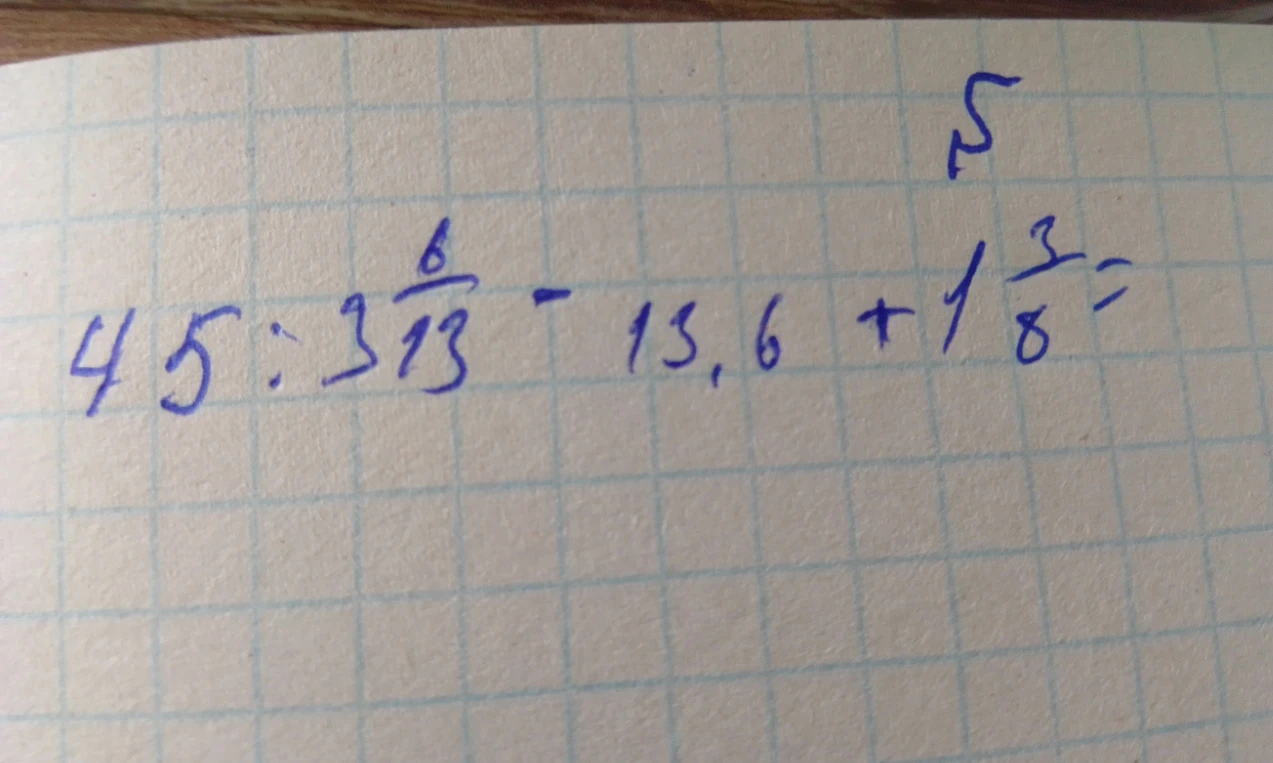 5
45 : 3 6/13 - 13,6 + 1 3/8 =